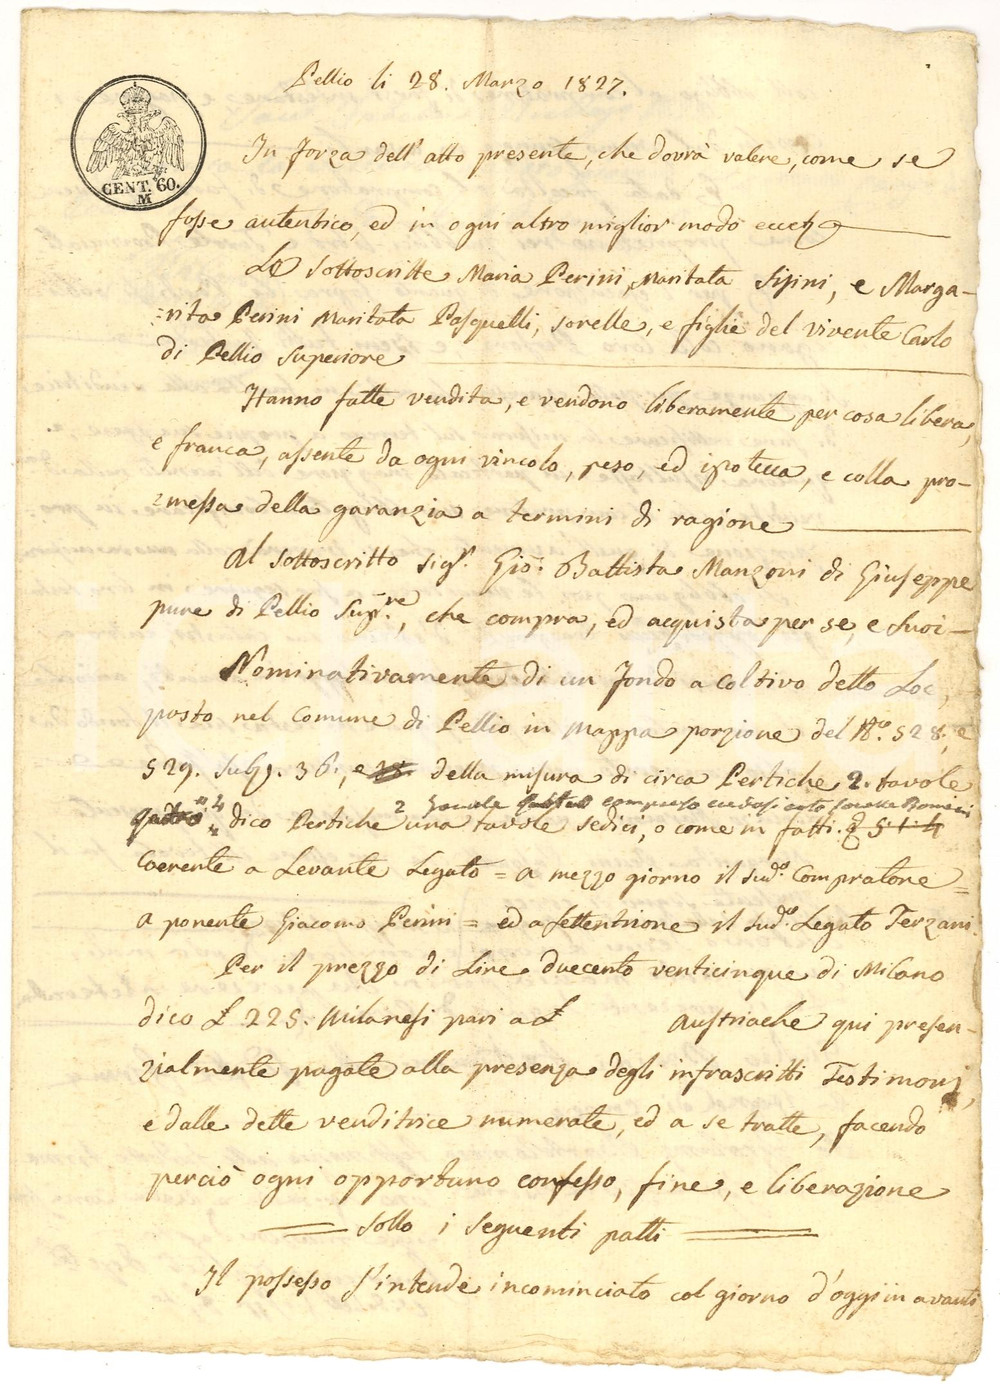 Pellio li 28. Marzo 1827.
CENT. 60.
M
In forza dell'atto presente, che dovrà valere, come se
fosse autentico, ed in ogni altro miglior modo eccet.ª
Le sottoscritte Maria Perini, Maritata Sisini, e Marga-
=rita Perini Maritata Pasquelli, sorelle, e figlie del vivente Carlo
di Pellio Superiore
Hanno fatte vendita, e vendono liberamente per cosa libera,
e franca, assente da ogni vincolo, peso, ed ipotecca, e colla pro-
=messa della garanzia a termini di ragione
Al sottoscritto sig.r Gio. Battista Manzoni di Giuseppe
pure di Pellio Sup.re, che compra, ed acquista per se, e suoi-
Nominativamente di un fondo a coltivo detto Loc,
posto nel Comune di Pellio in mappa porzione del N.o 528, e
529. sub 1. 36., e della misura di circa Pertiche 2. tavole
quattro dico Pertiche 2 una tavole sedici, o come in fatti.
Coerente a Levante Legato = a mezzo giorno il sud.o Compratore =
a ponente Giacomo Perini = ed a settentrione il sud.o Legato Terzani.
Per il prezzo di Lire duecento venticinque di Milano
dico £ 225. Milanesi pari a £ Austriache qui presen-
zialmente pagate alla presenza degli infrascritti Testimonj,
e dalle dette venditrice numerate, ed a se tratte, facendo
perciò ogni opportuno confesso, fine, e liberazione
sotto i seguenti patti
Il possesso s'intende incominciato col giorno d'oggi in avanti